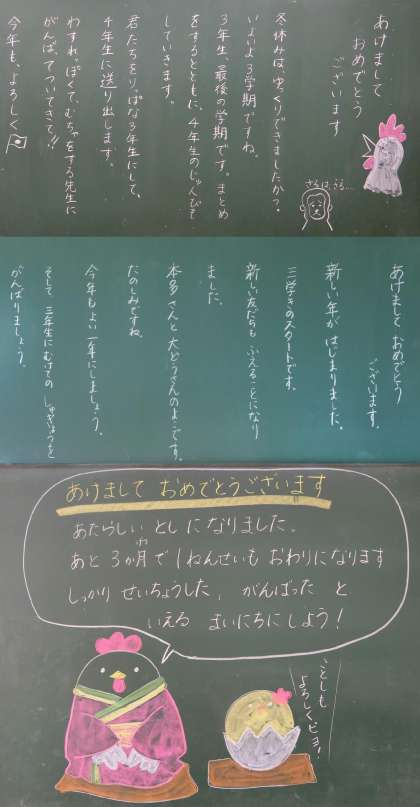 あけまして
おめでとう
ございます
冬休みは、ゆっくりできましたか？
いよいよ3学期ですね。
3年生、最後の学期です。まとめ
をするとともに、4年生のじゅんびを
していきます。
君たちをりっぱな3年生にして、
4年生に送り出します。
わすれっぽくて、むちゃをする先生に
がんばってついてきて!!
今年も、よろしく
さるは、さる…
あけまして おめでとう
ございます。
新しい年が はじまりました。
三学きのスタートです。
新しい友だちも ふえることになり
ました。
本多さんと 大どうさんの
たのしみですね。
今年もよい一年にしましょう。
そして 三年生にむけての
がんばりましょう。
あけまして おめでとうございます
あたらしい としに なりました。
あと 3か月で 1ねんせいも おわりになります
しっかり せいちょうした、がんばった と
いえる まいにちにしよう!
ことしも
よろしくピヨ!